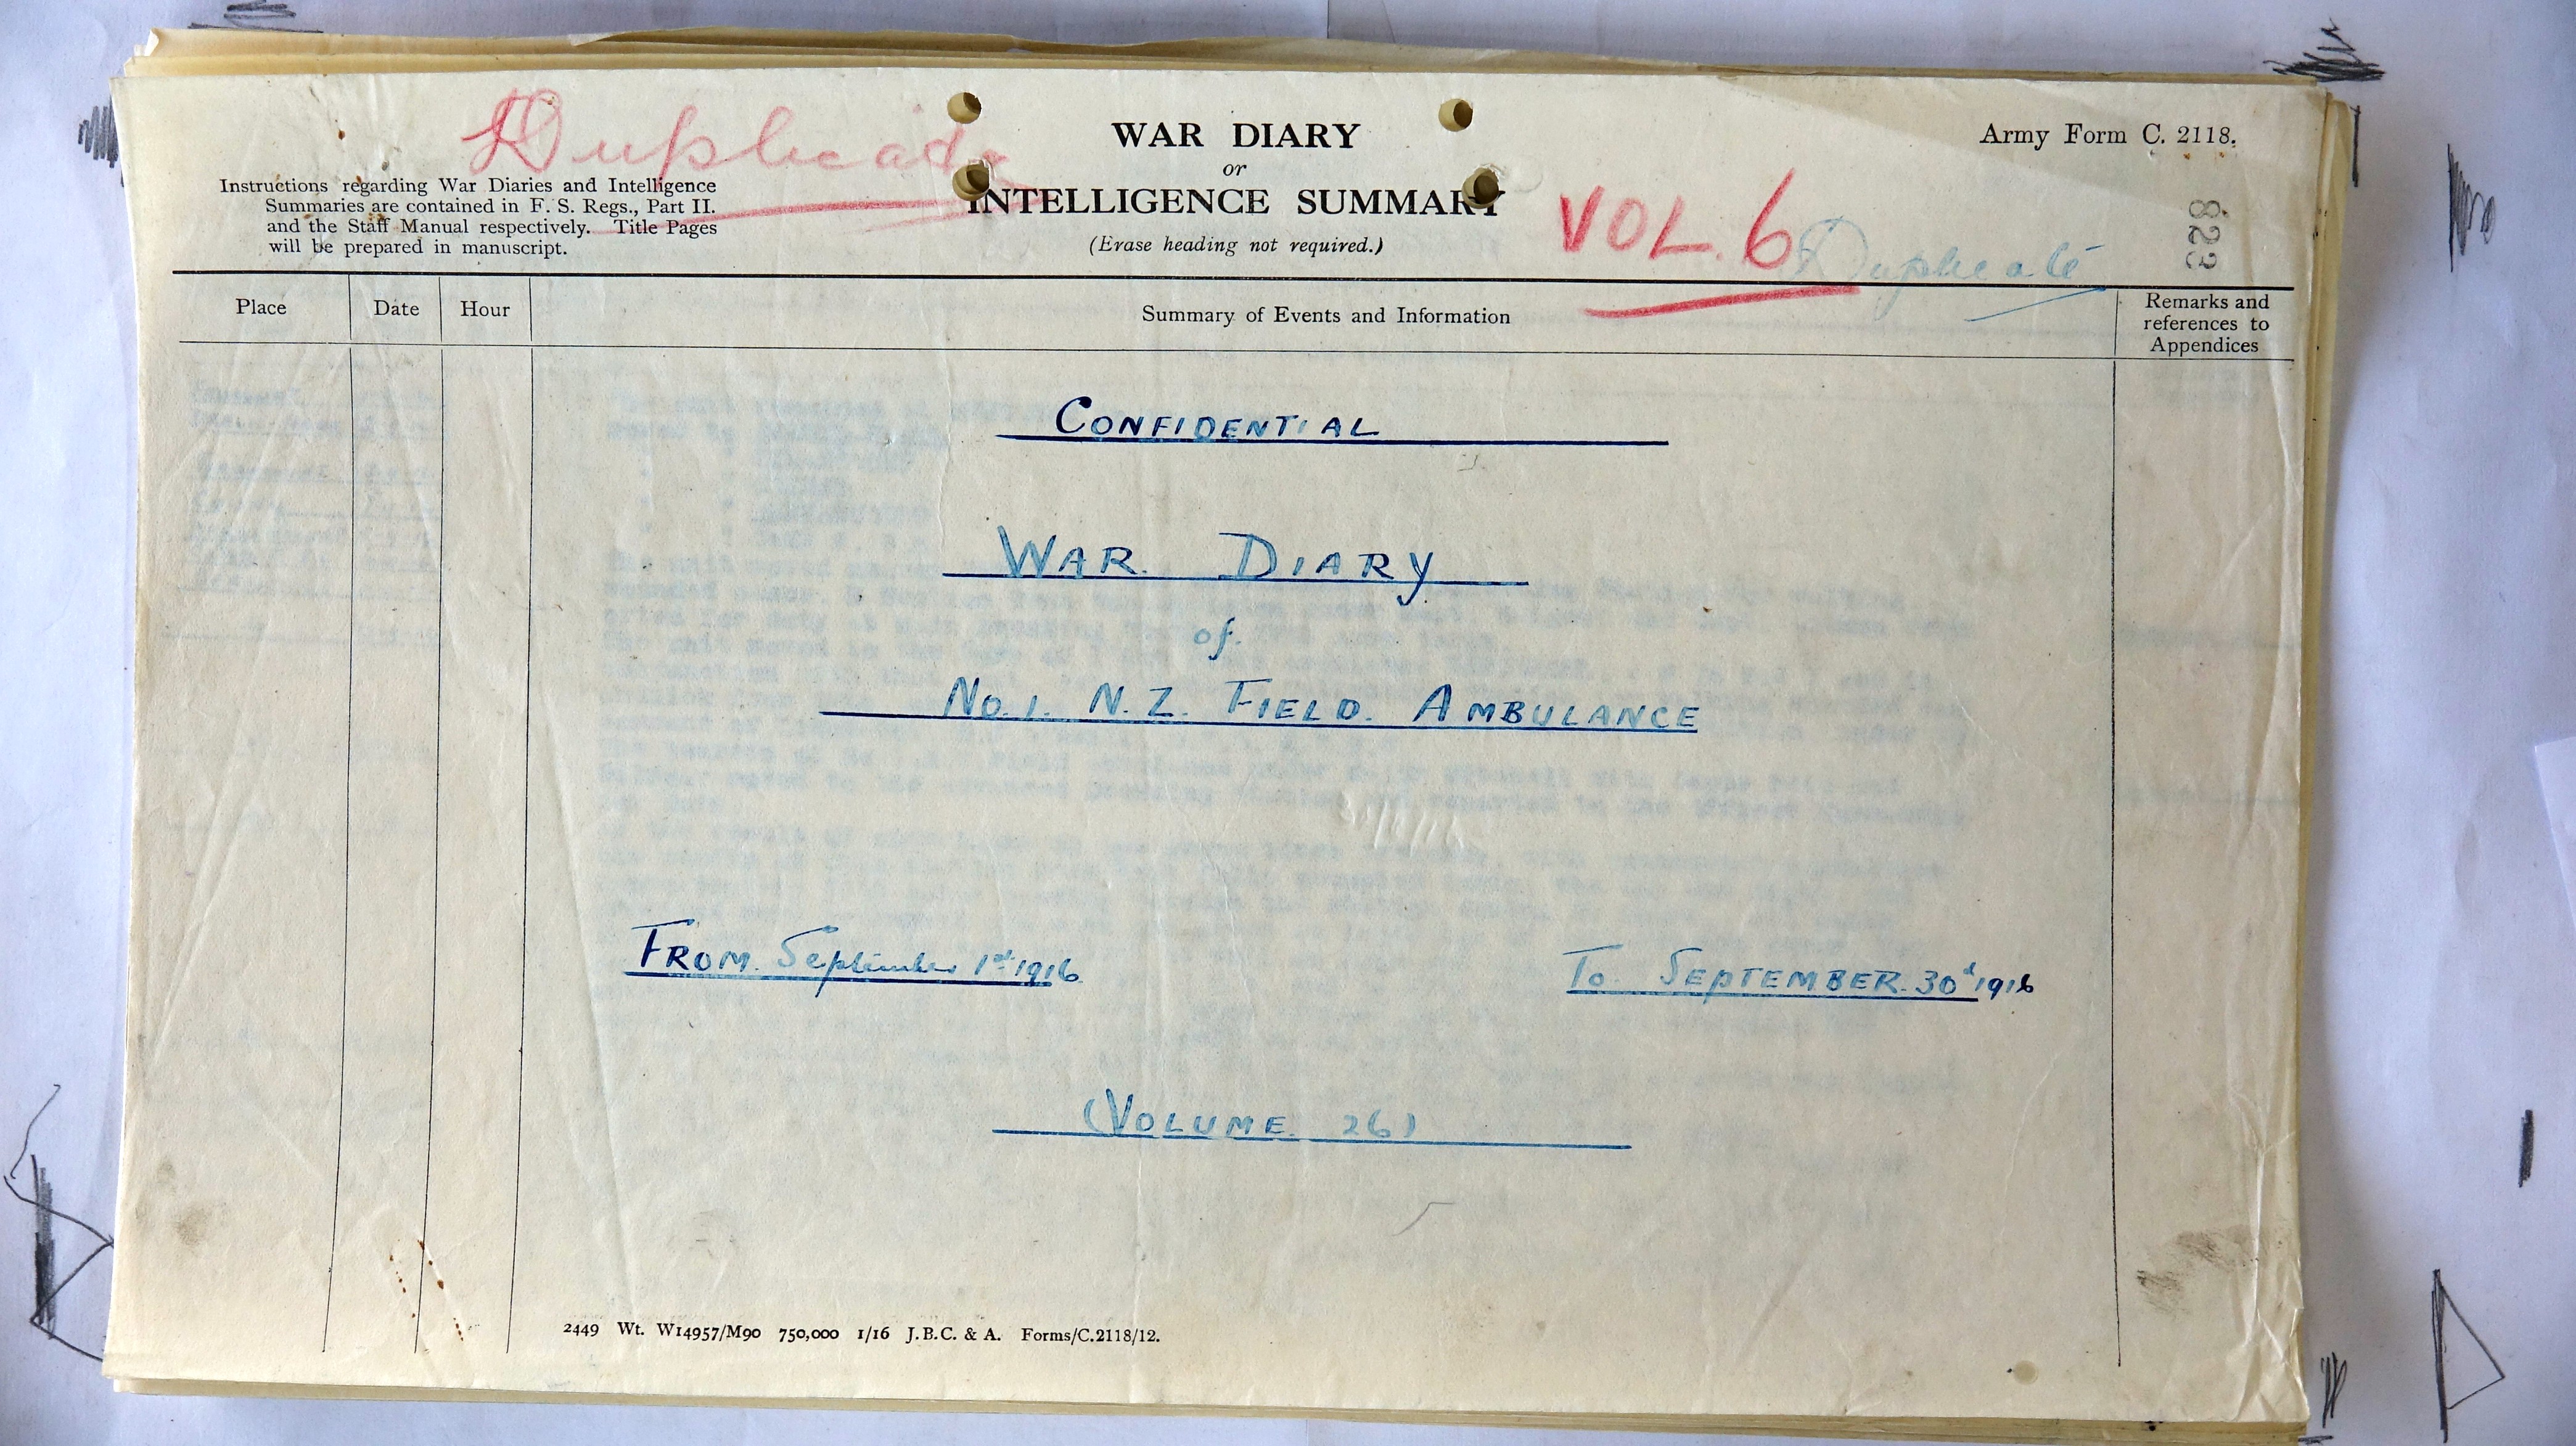 Duplicate
WAR DIARY
or
INTELLIGENCE SUMMARY
(Erase heading not required.)
Army Form C. 2118.
Instructions regarding War Diaries and Intelligence
Summaries are contained in F. S. Regs., Part II.
and the Staff Manual respectively. Title Pages
will be prepared in manuscript.
VOL. 6
Duplicate
823
Place
Date
Hour
Summary of Events and Information
Remarks and
references to
Appendices
CONFIDENTIAL
WAR DIARY
of
No. 1. N. Z. FIELD. AMBULANCE
FROM. September 1st 1916
To. SEPTEMBER. 30d 1916
(VOLUME. 26)
2449 Wt. W14957/M90 750,000 1/16 J.B.C. & A. Forms/C.2118/12.